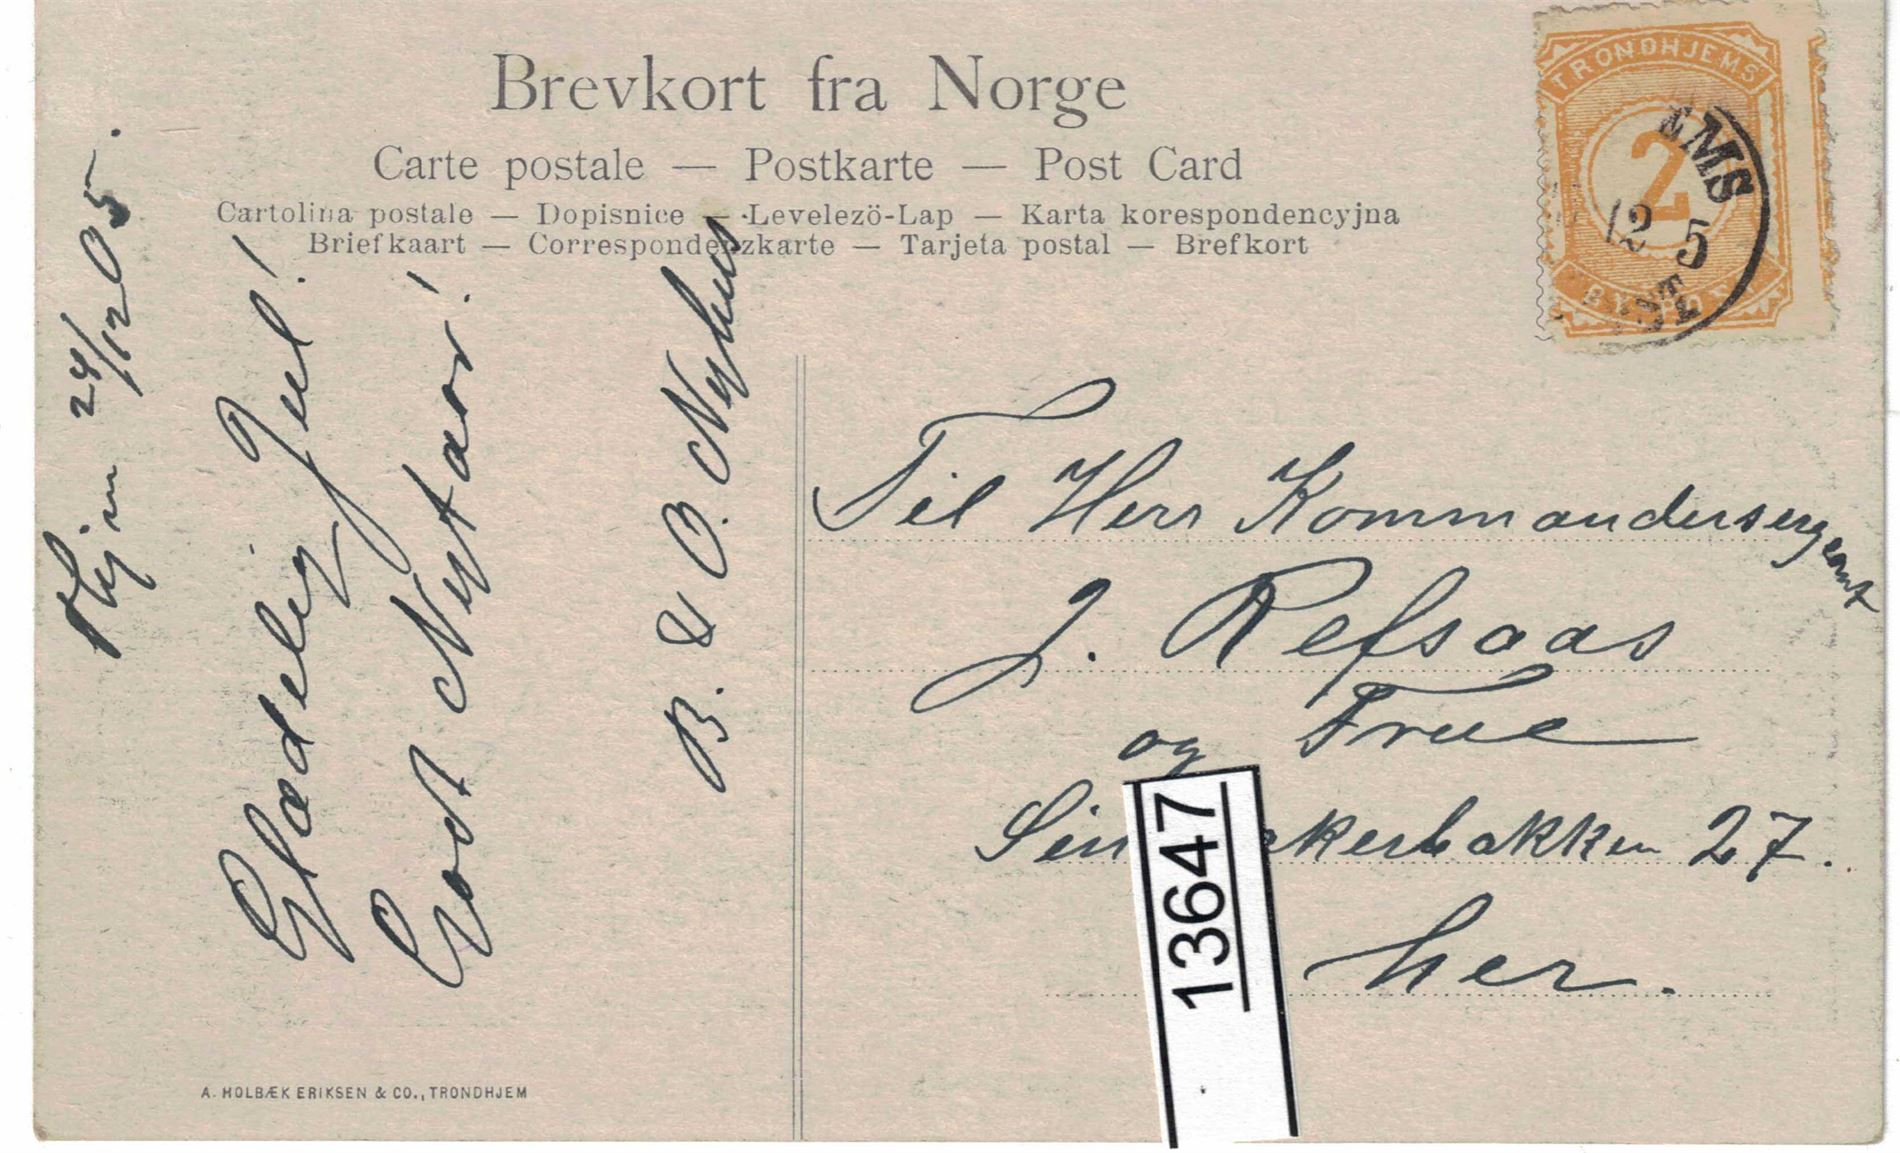 Brevkort fra Norge
Carte postale — Postkarte — Post Card
Cartolina postale — Dopisnice — Levelezö-Lap — Karta korespondencyjna
Briefkaart — Correspondenzkarte — Tarjeta postal — Brefkort
TRONDHJEMS
2
EMS
12 5
24/12 05.
Glædelig Jul!
Godt Nytaar!
B. & O. Nyhus
Til Herr Kommandersergeant
J. Refsaas
og Frue
27.
her.
13647
A. HOLBÆK ERIKSEN & CO., TRONDHJEM